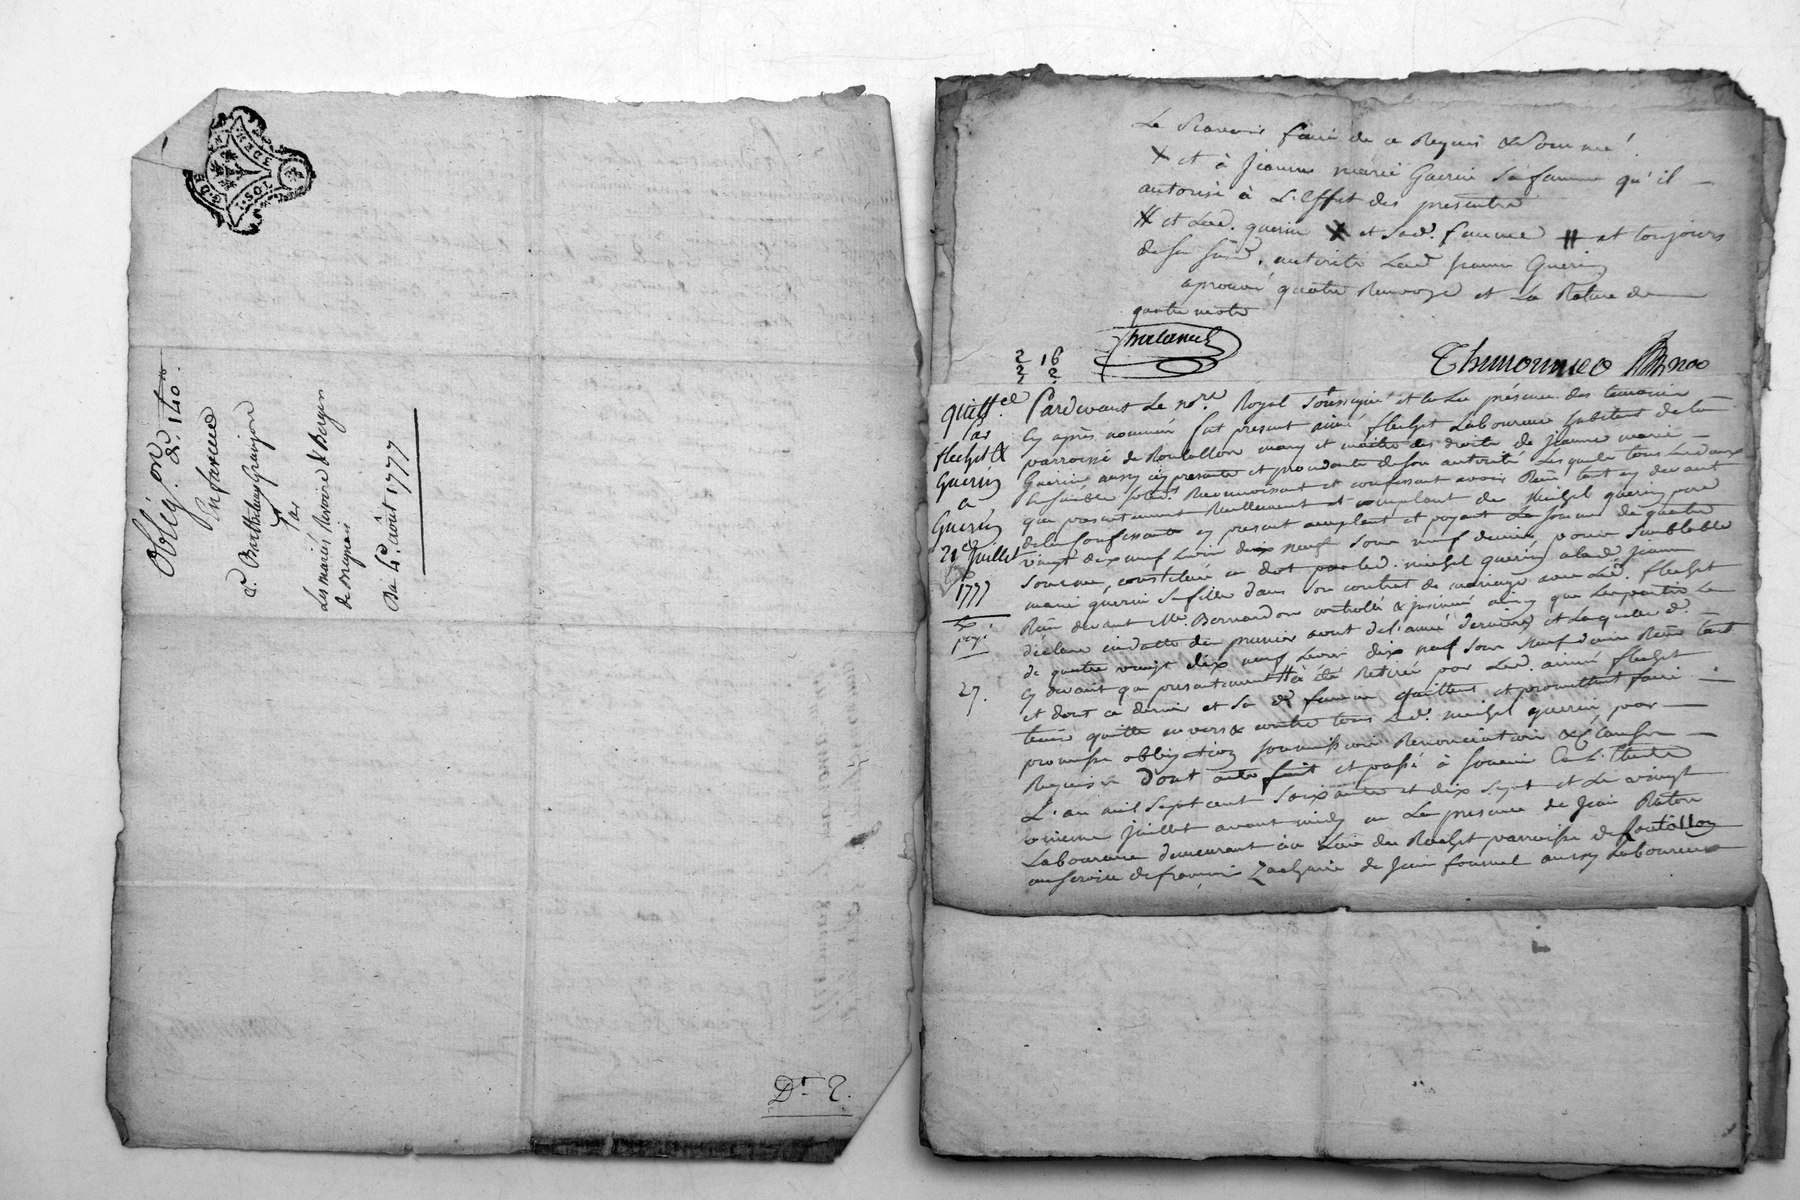 DE
3DEN
SOL
Oblig.on de 140.tt
En faveur
de Barthelemy Grangeon
Par
Les mariés Revoire & Bergeron
de
Du 4.e août 1777
D.r 2.
faire de ce Requis & Sommé
X et à Jeanne marie Guerin Sa femme qu'il
autorise à L'Effet des presentes
# et Led. guerin X et Sad. femme # et toujours
de Sa Susd. autorité Lad. Jeanne Guerin
aprouvé quatre Renvoye et La Rature de
quatre mots
2 16
2 2
Thimonnier
quitt.ce
Par
flechet &
Guerin
a
Guerin
21.e Juillet
1777
payé
27.
Pardevant Le no.re Royal Soussigné et en La présence des temoins
Cy après nommés fut present aimé flechet Laboureur habitant de la
parroisse de Rontallon mary et maitre des droits de Jeanne marie
Guerin aussy cy presente et procedante de Son autorité Lesquels tous Lesdeux
Ensemble Solid.t Reconnoissent et confessent avoir Reçu tant cy devant
que presentement Réellement et comptant de Michel guerin pere
de la Confessante cy present acceptant et payant La Somme de quatre
vingt dix neuf Livres dix neuf Sous neuf deniers pour Semblable
Somme constituée en dot par led. michel guerin a lad. Jeanne
marie guerin Sa fille dans Son contrat de mariage avec Led. flechet
Reçu devant M.e Bernard controllé & insinué ainsy que Les parties Le
déclarent en datte du premier aout de l'année derniere et Laquelle d.
de quatre vingt dix neuf Livres dix neuf Sous neuf deniers Reçue tant
cy devant que presentement # a été Retirée par Led. aimé flechet
et dont ce dernier et Sa d. femme quittent et promettent faire
tenir quitte envers & contre tous Led. michel guerin par
promesse obligation Soumission Renonciation & Clauses
Requises Dont acte fait et passé à
L'an mil Sept cent Soixante et dix Sept et Le vingt
unieme Juillet avant midy en La presence de Jean Raton
Laboureur demeurant au Lieu du Rochet parroisse de Rontallon
au Service de françois Zacharie de Jean fournel aussy Laboureur